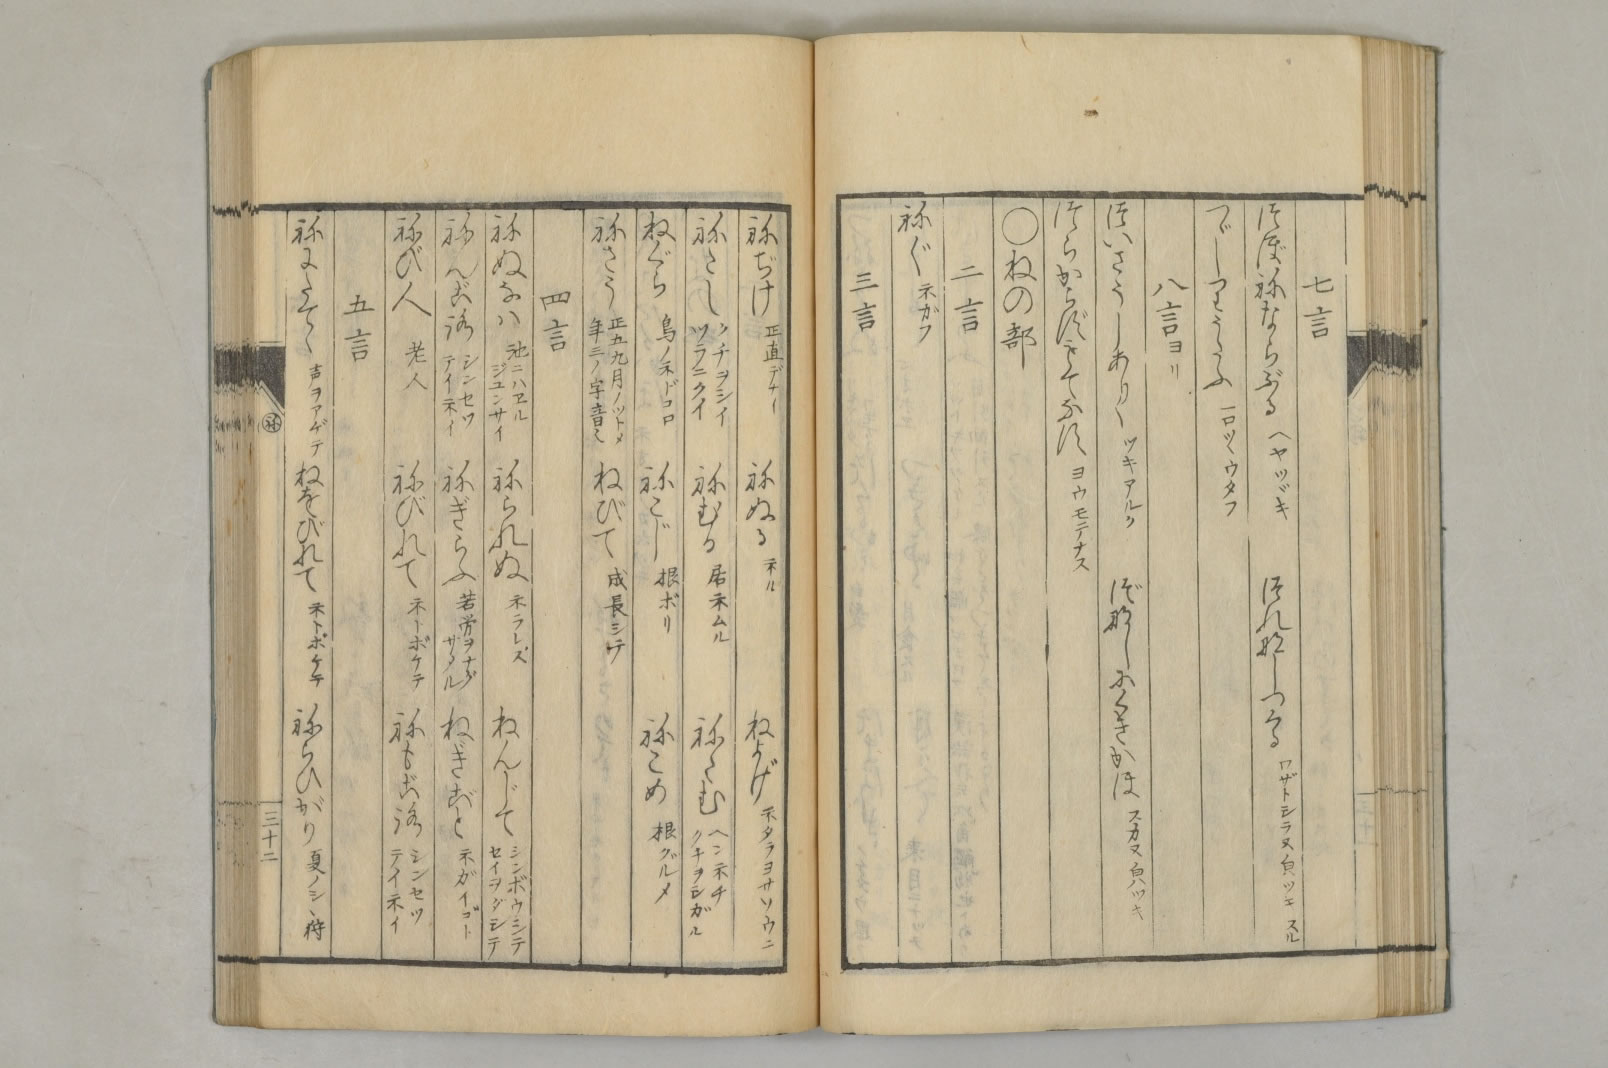 七言
つぼねならぶる ヘヤツヾキ
つれなしつくる ワザトシラヌ皃ツキスル
一口ツヽウタフ
八言ヨリ
ついさうしありく ツキアルク
づなしにくきかほ スカヌ皃ツキ
つらからずもてなす ヨウモテナス
〇ねの部
二言
ねぐ ネガフ
三言
ねぢけ 正直デナイ
ねぬる ネル
ねよげ ネタラヨサソウニ
ねたし クチヲシイ ツラニクイ
ねむる 居ネムル
ねたむ ヘンネチ クチヲシガル
ねぐら 鳥ノネドコロ
ねこじ 根ボリ
ねこめ 根グルメ
ねさう 正五九月ノツトメ 年三ノ字音ミ
ねびて 成長シテ
四言
ねぬなハ 池ニハヱル ジユンサイ
ねられぬ ネラレズ
ねんじて シンボウシテ セイヲダシテ
ねんごろ シンセツ テイネイ
ねぎらふ 苦労ヲナグサムル
ねぎごと ネガイゴト
ねび人 老人
ねびれて ネトボケテ
ねもごろ シンセツ テイネイ
五言
ねにたてゝ 声ヲアゲテ
ねをびれて ネトボケテ
ねらひがり 夏ノシヽ狩
ね
三十二